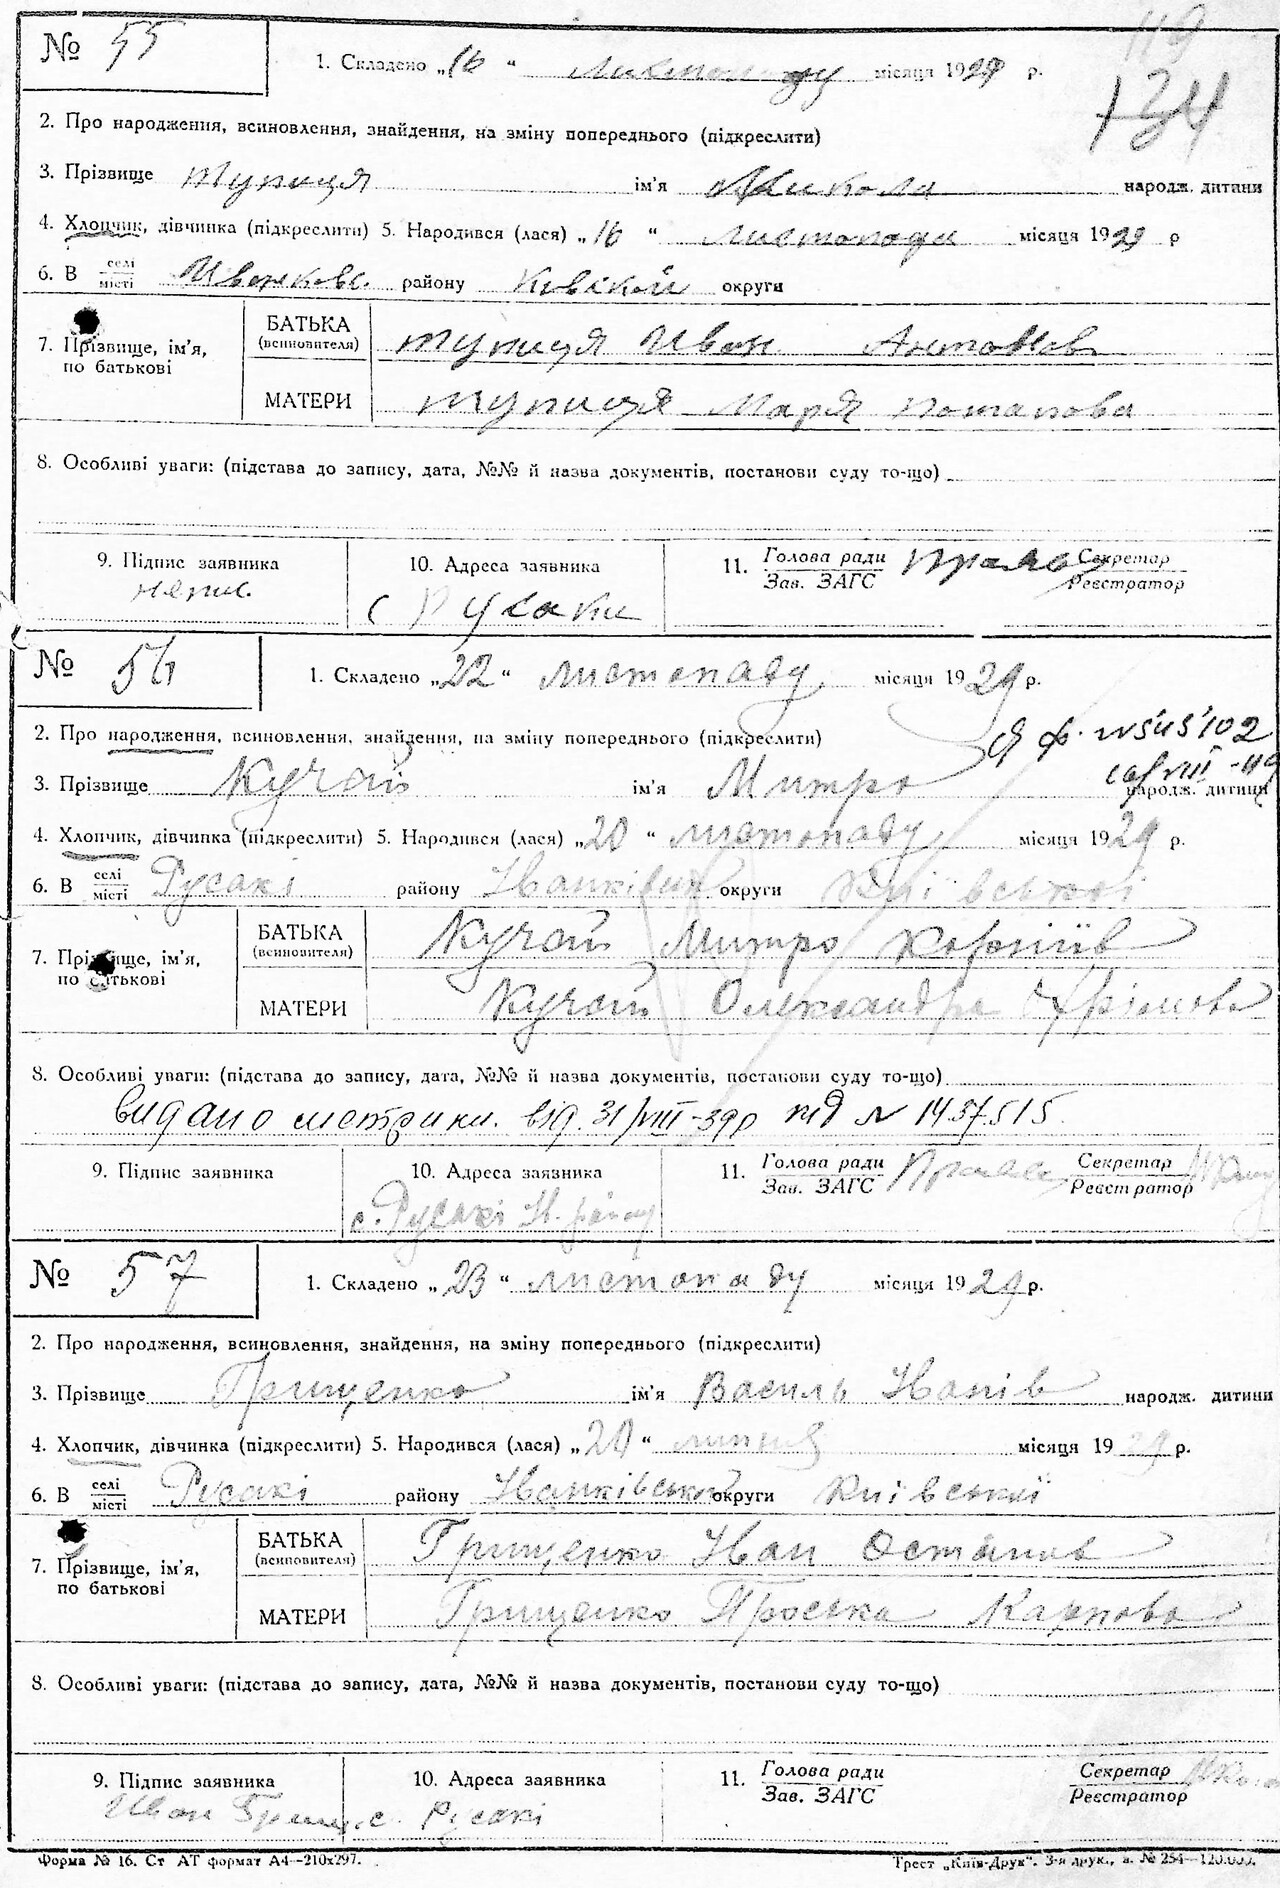 119
134
№ 55
1. Складено „16“ листопаду місяця 1929 р.
2. Про народження, всиновлення, знайдення, на зміну попереднього (підкреслити)
3. Прізвище Тупиця ім'я Микола народж. дитини
4. Хлопчик, дівчинка (підкреслити) 5. Народився (лася) „16“ листопада місяця 1929 р
6. В селі/місті Иванковс. району Кивской округи
7. Прізвище, ім'я, по батькові
БАТЬКА (всиновителя) Тупиця Иван Антонов
МАТЕРИ Тупиця Марія Потапова
8. Особливі уваги: (підстава до запису, дата, №№ й назва документів, постанови суду то-що)
9. Підпис заявника 10. Адреса заявника 11. Голова ради/Зав. ЗАГС Секретар/Реєстратор
непис. с Русаки
№ 56
1. Складено „22“ листопаду місяця 1929 р.
2. Про народження, всиновлення, знайдення, на зміну попереднього (підкреслити)
3. Прізвище Кучай ім'я Митро народж. дитини
4. Хлопчик, дівчинка (підкреслити) 5. Народився (лася) „20“ листопаду місяця 1929 р.
6. В селі/місті Русакі району Іванківськ округи Київської
7. Прізвище, ім'я, по батькові
БАТЬКА (всиновителя) Кучай Митро Корніїв
МАТЕРИ Кучай Олександра Охрімова
8. Особливі уваги: (підстава до запису, дата, №№ й назва документів, постанови суду то-що)
видано метрики. від. 31/VIII-39р під № 1457515.
9. Підпис заявника 10. Адреса заявника 11. Голова ради/Зав. ЗАГС Секретар/Реєстратор
с. Русакі Ів. району
№ 57
1. Складено „23“ листопаду місяця 1929 р.
2. Про народження, всиновлення, знайдення, на зміну попереднього (підкреслити)
3. Прізвище Грищенко ім'я Василь Іванів народж. дитини
4. Хлопчик, дівчинка (підкреслити) 5. Народився (лася) „20“ місяця 1929 р.
6. В селі/місті Русакі району Іванківської округи Київської
7. Прізвище, ім'я, по батькові
БАТЬКА (всиновителя) Грищенко Іван Остапов
МАТЕРИ Грищенко Проська Карпова
8. Особливі уваги: (підстава до запису, дата, №№ й назва документів, постанови суду то-що)
9. Підпис заявника 10. Адреса заявника 11. Голова ради/Зав. ЗАГС Секретар/Реєстратор
Иван Грищ. с. Русакі
Форма № 16. Ст АТ формат А4—210х297. Трест „Київ-Друк“. 3-я друк., з. № 254—120.000.